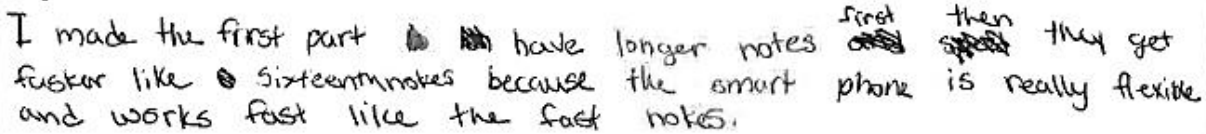 I made the first part have longer notes first then they get
faster like sixteenth notes because the smart phone is really flexible
and works fast like the fast notes.